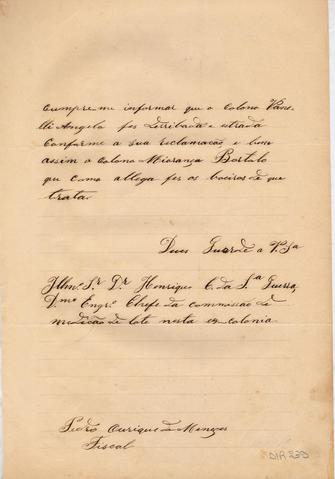 Cumpre-me informar que o colono Vanel-
li Angelo fes derribada e estrada
conforme a sua reclamação, e bem
assim o colono Mioranza Bortolo
que como allega fes os boeiros de que
trata.
Deus Guarde a V. Sª
Illmº Sr Dr Henrique C. da Sª Guerra,
Dmº Engrº Chefe da commissão de
medição de lote nesta ex-colonia.
Pedro Aurique de Menezes
Fiscal